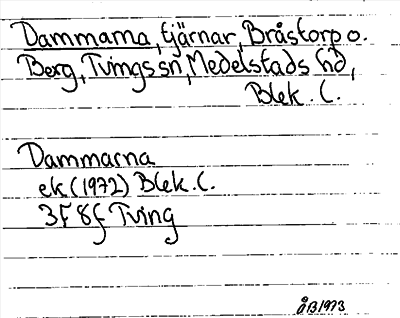 Dammarna, Gjärnar, Bråstorp o.
Berg, Tvings sn, Medelstads hd,
Blek. l.
Dammarna
ek (1972) Blek. l.
3F 8f Tving
ÅB 1973